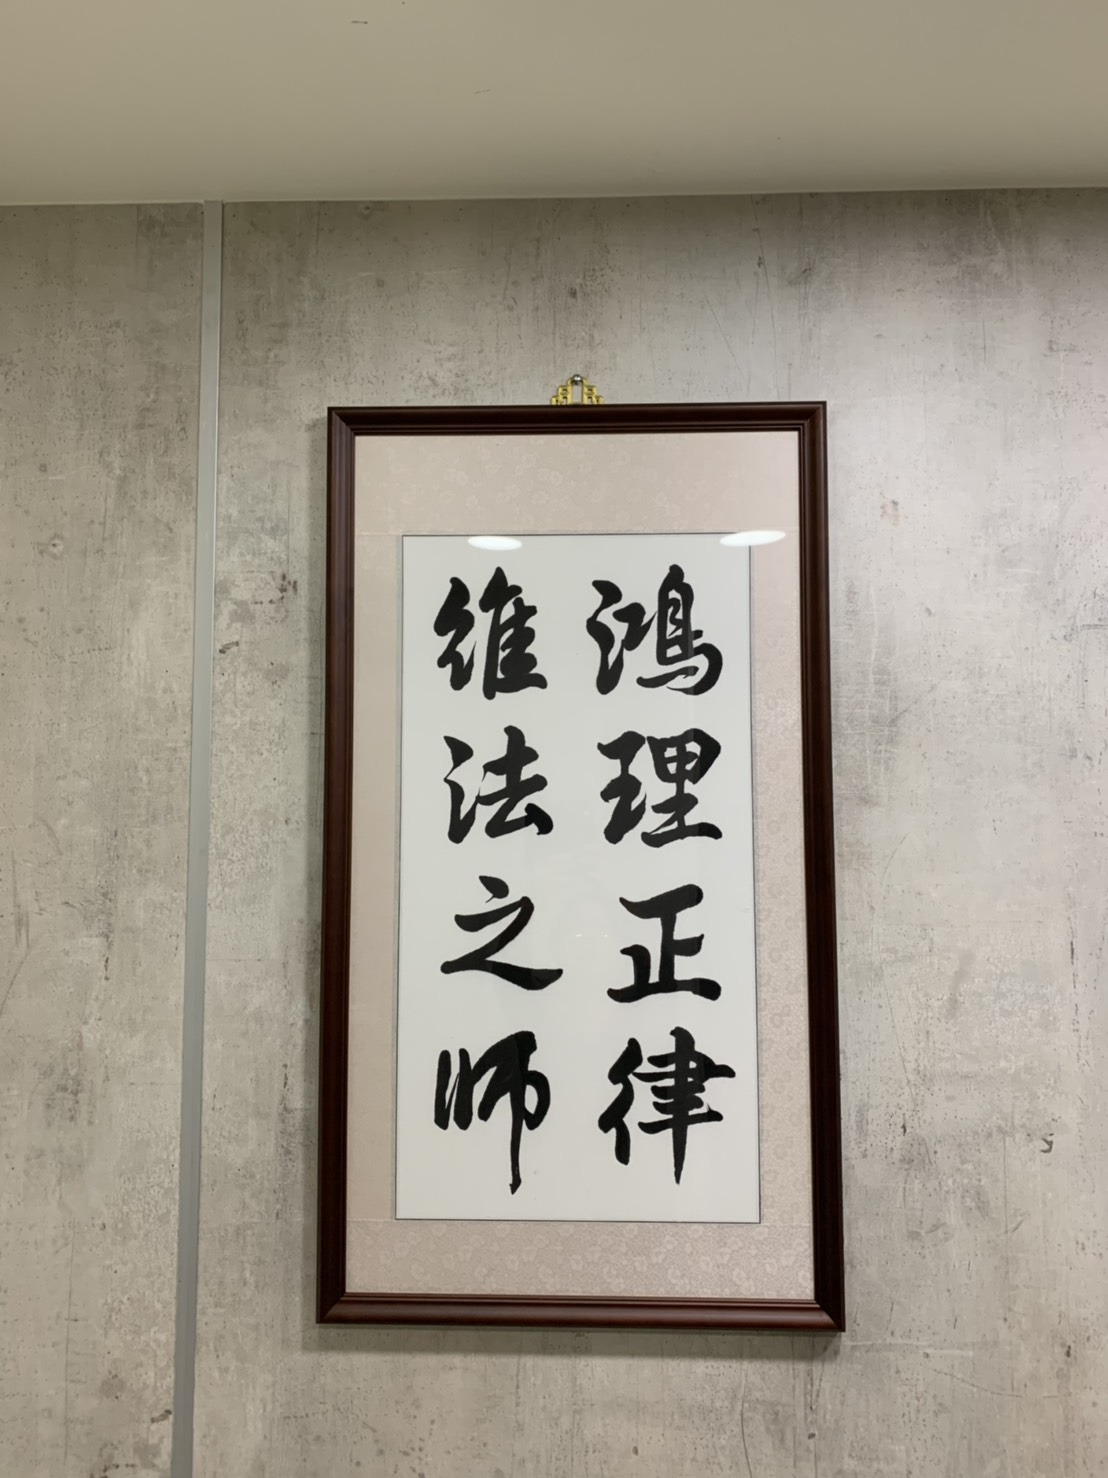 鴻理正律
維法之師